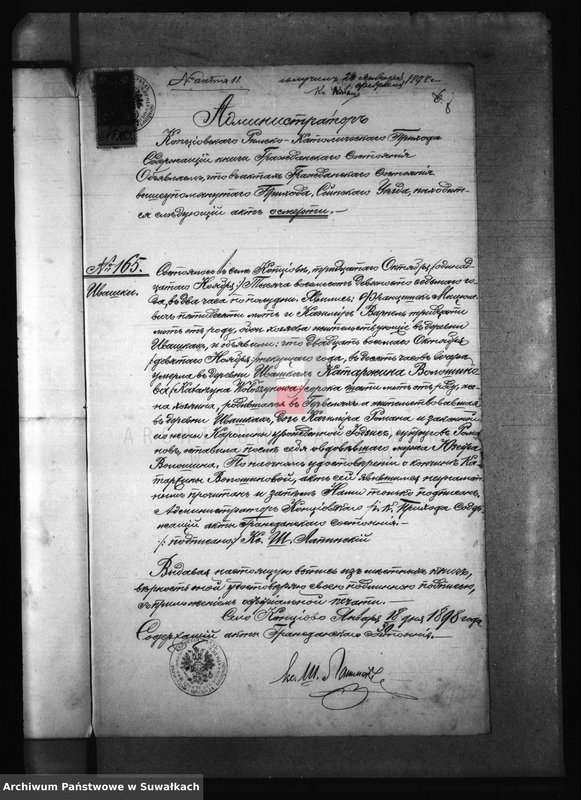 № акта 11 получилъ 20 января 1898 г.
Администраторъ
Копціовскаго Римско-Католическаго Прихода
Содержащій книги Гражданскаго Состоянія
Объявляетъ, что въ актахъ Гражданскаго Состоянія
вышеупомянутаго Прихода, Сейнскаго Уѣзда, находит-
ся слѣдующій актъ о смерти.—
№ 165.
Ивашки.
Состоялось въ селѣ Копціовѣ, тридцатаго Октября /одинад-
цатаго Ноября/ Тысяча восемьсотъ девяносто седьмаго го-
да, въ два часа по полудни. Явились: Францишекъ Мацке-
вичъ пятидесяти лѣтъ и Казимиръ тридцати
лѣтъ отъ роду, оба хозяева жительствующіе въ деревни
Ивашкахъ, и объявили: что двадцать восьмаго Октября
/девятаго Ноября/ текущаго года, въ десять часовъ вечера,
умерла въ деревни Ивашкахъ Катаржина Волошино-
ва (Katarzyna Wołoszynowa) сорока шести лѣтъ отъ роду, же-
на хозяина, родившаяся въ и жительствовавшая
въ деревни Ивашкахъ, дочь Казимира Романа и законной
его жены Каролины урожденной супруговъ Рома-
новъ, оставила послѣ себя овдовѣвшаго мужа
Волошина. По наочномъ удостовѣреніи о кончинѣ Ка-
таржины Волошиновой, актъ сей явившимся неграмот-
нымъ прочитанъ и затѣмъ Нами только подписанъ.
Администраторъ Копціовскаго р. к. Прихода Содер-
жащій акты гражданскаго состоянія.—
/: подписано:/ Кс. Ш. Латинскій
Выдавая настоящую выпись изъ метическихъ книгъ,
вѣрность оной удостовѣряю своею подлинною подписью,
съ приложеніемъ оффиціальной печати.
Село Копціово Января 18 дня 1898 года
Содержащій акты Гражданскаго Состоянія:
кс. Ш. Латинскій
Archiwum Państwowe w Suwałkach